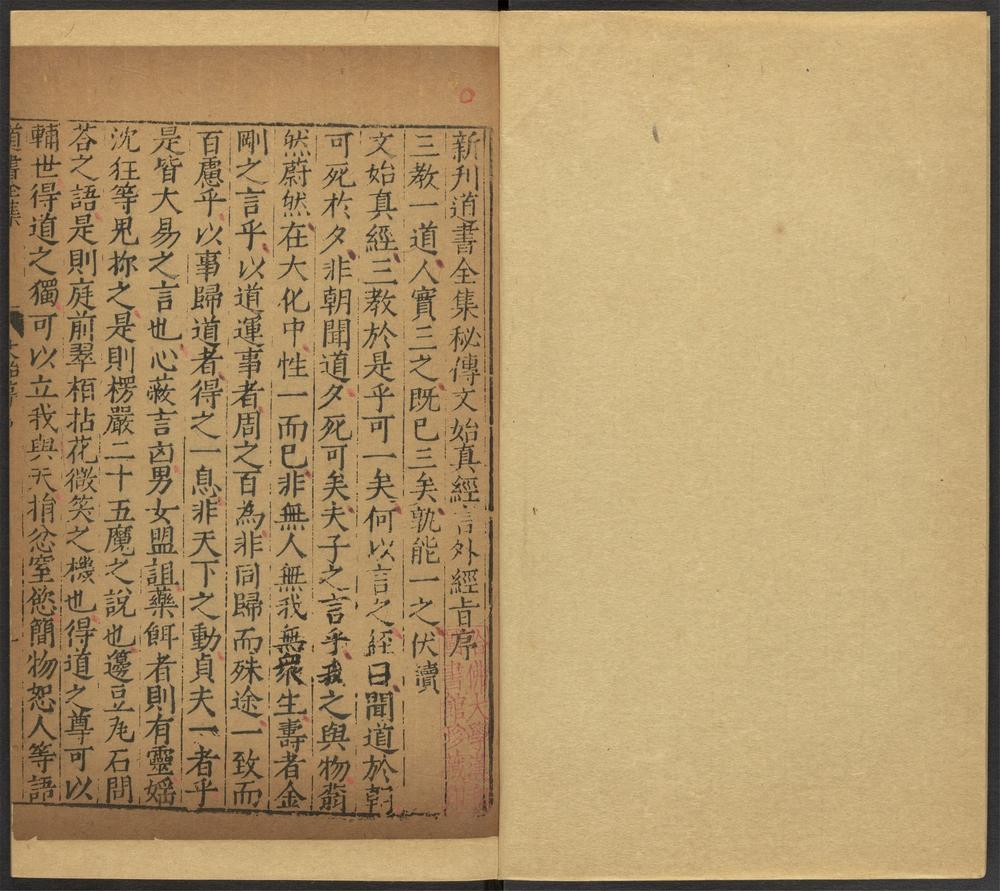 新刋道書全集秘傳文始真經言外經旨序
三教一道人實三之既已三矣孰能一之伏讀
文始真經三教於是乎可一矣何以言之經曰聞道於朝
可死於夕非朝聞道夕死可矣夫子之言乎我之與物蓊
然蔚然在大化中性一而已非無人無我無衆生壽者金
剛之言乎以道運事者周之百為非同歸而殊途一致而
百慮乎以事歸道者得之一息非天下之動貞夫一者乎
是皆大易之言也心蔽吉凶男女盟詛藥餌者則有靈婬
沈狂等鬼祢之是則楞嚴二十五魔之說也籩豆瓦石問
荅之語是則庭前翠栢拈花微笑之機也得道之尊可以
輔世得道之獨可以立我與夫損忿窒慾簡物恕人等語
道書全集
哈佛大學漢和圖書館珍藏印